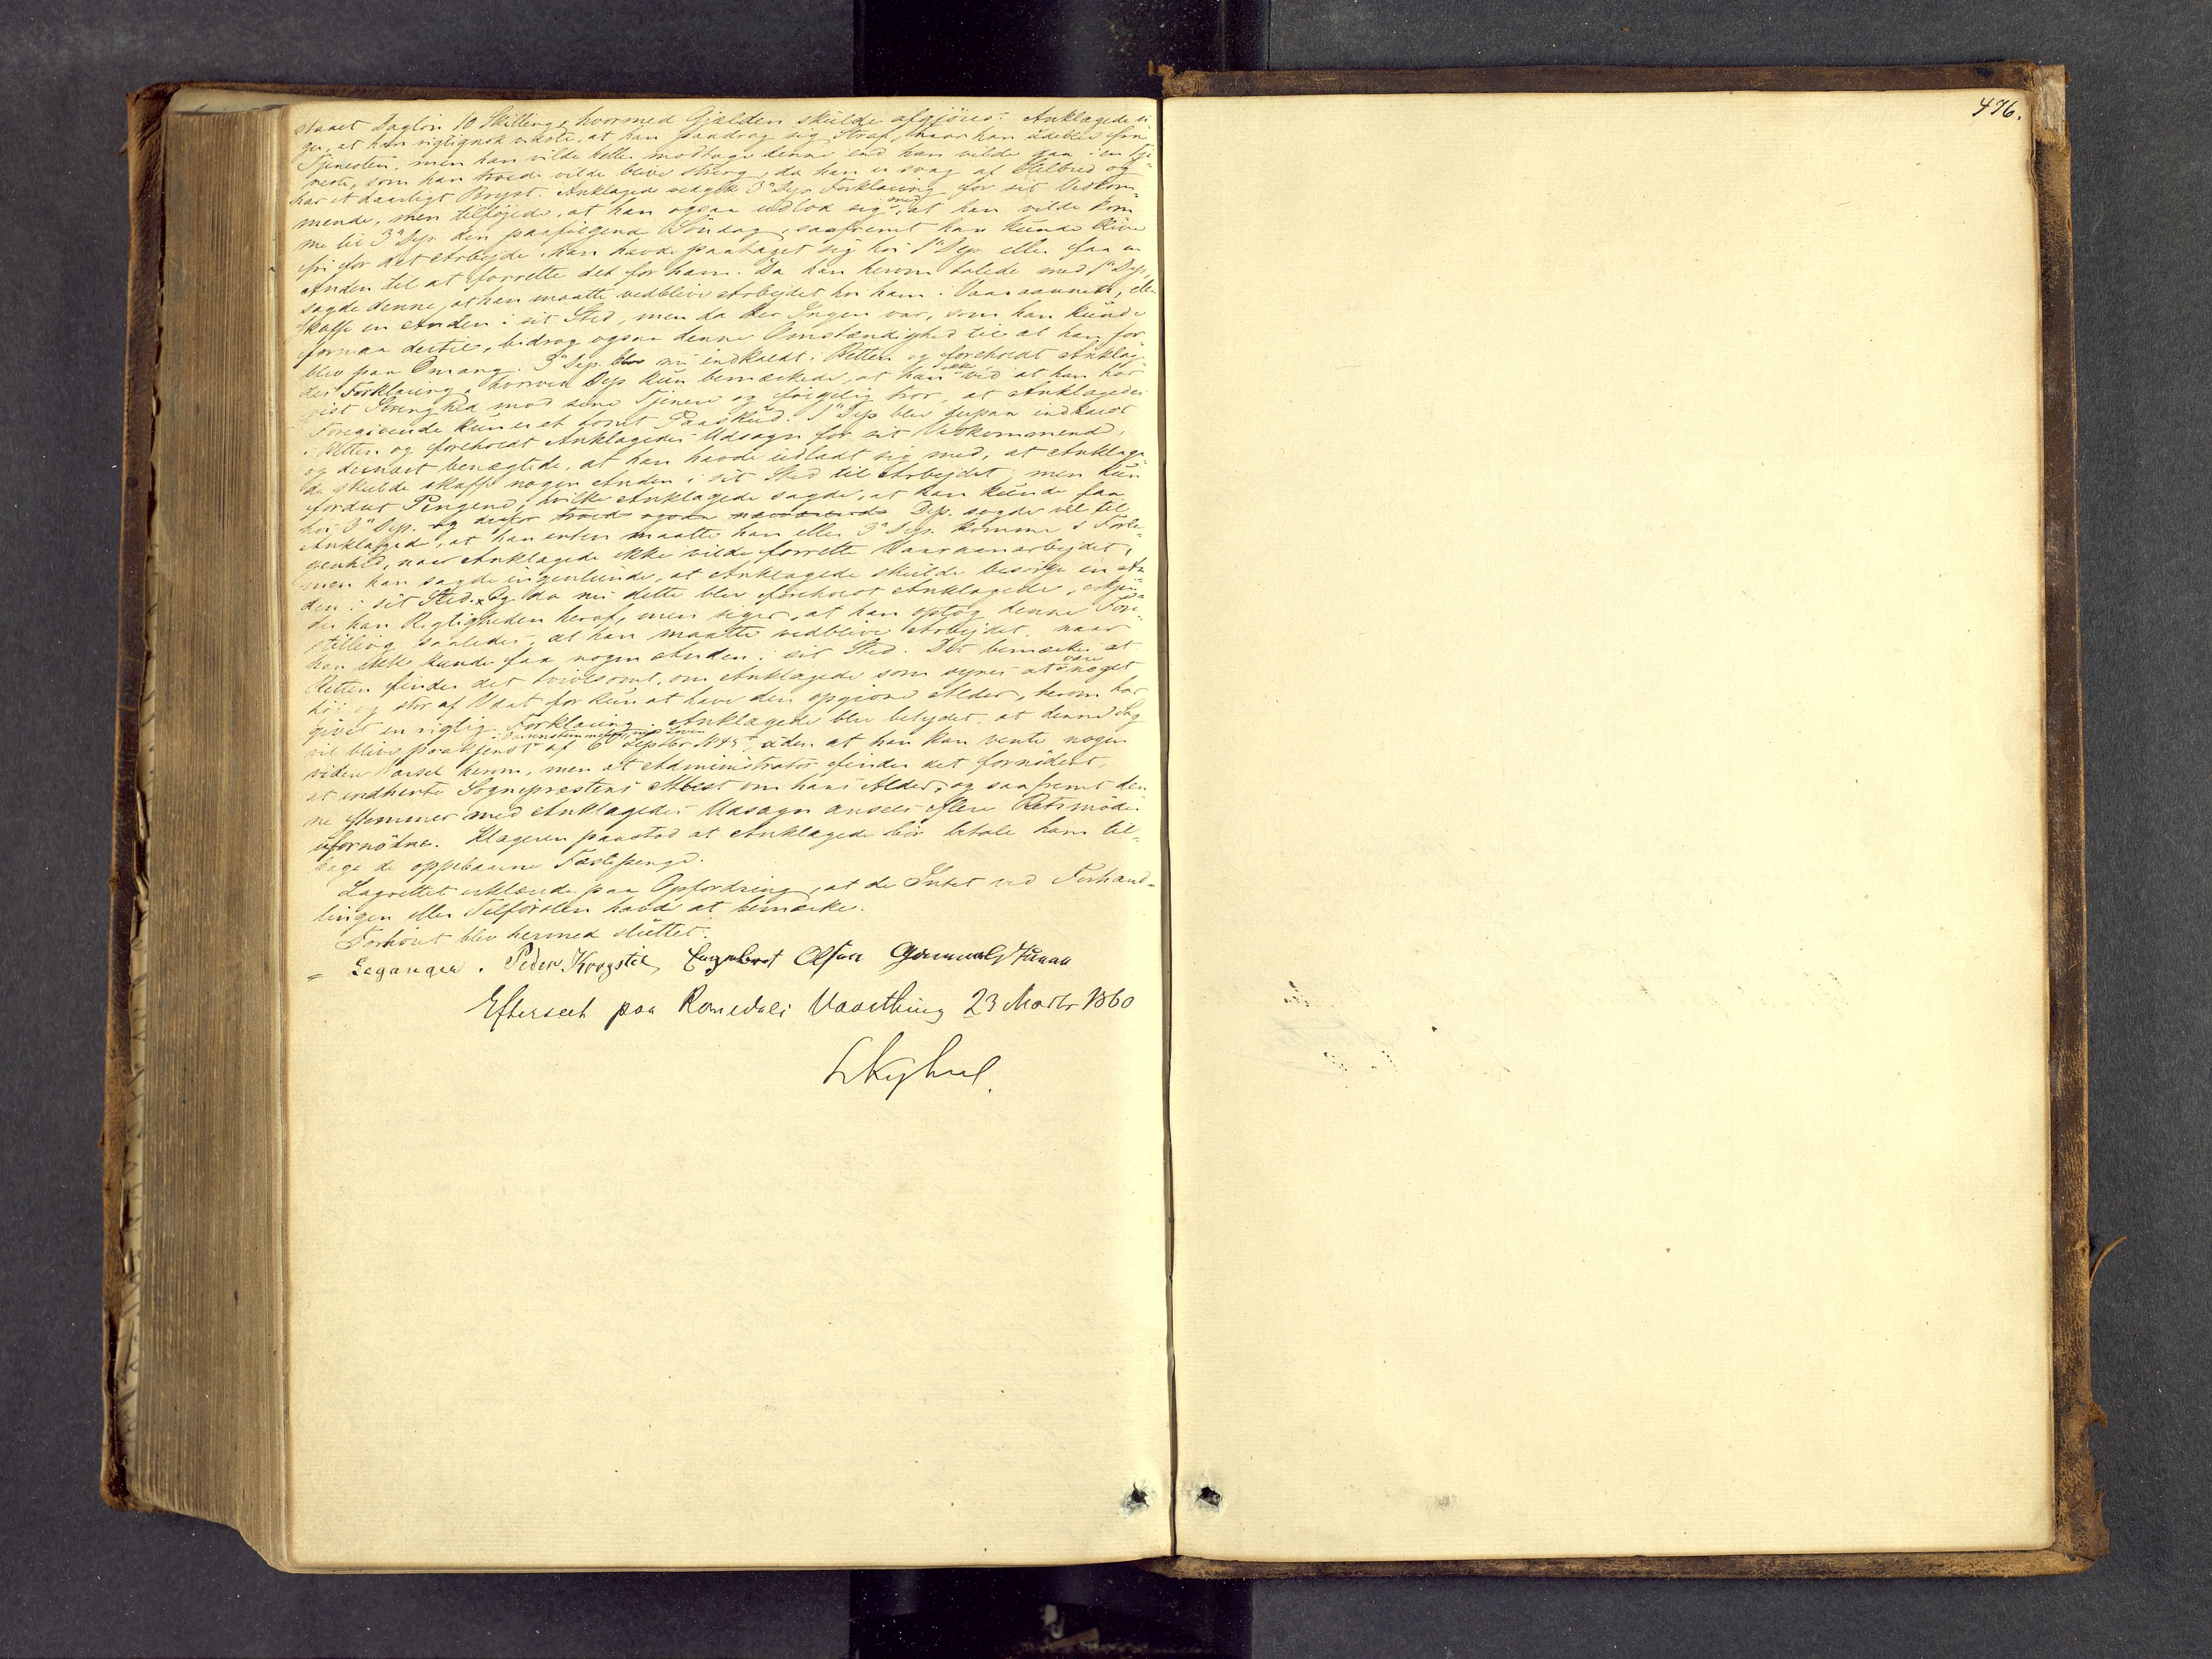 staaet Dagløn 10 Skilling, hvormed Gjælden skulde afgjøres. Anklagede si
ger, at han rigtignok vidste, at han paadrog sig Straf, naar han udeblev fra
Tjenesten, men han vilde heller modtage denne end han vilde gaa i en Tje
neste, som han troede vilde blive streng, da han er svag af Helbred og
har et daarligt Bryst. Anklagede vedgik 3" Dep. Forklaring for sit Vedkom
mende, men tilføjede, at han ogsaa udlod sig med, at han vilde kom
me til 3" Dep. den paafølgende Søndag, saafremt han kunde blive
fri for det Arbejde, han havde paataget sig hos 1" Dep. eller faa en
Anden til at forrette det for ham. Da han herom talede med 1" Dep.,
sagde denne, at han maatte vedblive Arbejdet hos ham i Vaaraannen, eller
skaffe en Anden i sit Sted, men da der Ingen var, som han kunde
formaa dertil, bidrog ogsaa denne Omstændighed til at han for
blev paa Omang. 3" Dep. blev nu indkaldt i Retten og foreholdt Anklage
des Forklaring, hvorved Dep. kun bemærkede, at han ikke ved at han har
vist Strenghed mod sine Tjenere og følgelig tror, at Anklagedes
Foregivende kun er et tomt Paaskud. 1" Dep. blev derpaa indkaldt
i Retten og foreholdt Anklagedes Udsagn for sit Vedkommende,
og desnæst benægtede, at han havde udladt sig med, at Anklage
de skulde skaffe nogen Anden i sit Sted til Arbejdet, men kun
fordret Pengene, hvilke Anklagede sagde, at han kunde faa
hos 3" Dep. og derfor troede ogsaa nærværende Dep. sagde vel til
Anklagede, at han enten maatte han eller 3" Dep. komme i Forle
genhed, naar Anklagede ikke vilde forrette Vaaraanarbejdet,
men han sagde ingenlunde, at Anklagede skulde besørge en An
den i sit Sted. Og da nu dette blev foreholdt Anklagede, erkjen
der han Rigtigheden heraf, men siger, at han optog denne Fore
stilling saaledes, at han maatte vedblive Arbejdet, naar
han ikke kunde faa nogen Anden i sit Sted. Det bemærkes at
Retten finder det tvivlsomt, om Anklagede som synes at være noget
høi og stor af Væxt for kun at have den opgivne Alder, herom har
givet en rigtig Forklaring. Anklagede blev betydet, at denne Sag
vil blive paakjendt i Overensstemmelse med Loven af 6 Septbr 1845, uden at han kan vente nogen
videre Varsel herom, men at Administrator finder det fornødent,
at indhente Sognepræstens Attest om hans Alder, og saafremt den
ne stemmer med Anklagedes Udsagn ansees flere Retsmøder
ufornødne. Klageren paastod at Anklagede bør betale ham til
bage de oppebaarne Fæstepenge.
Lagrettet erklærede paa Opfordring, at de Intet ved Forhand-
lingen eller Tilførslen havde at bemærke.
Forhøret blev hermed sluttet.
Leganger. Peder Krogstie, Engebret Olsen
Efterseet paa Romedals Vaarthing 23 Marts 1860
476.